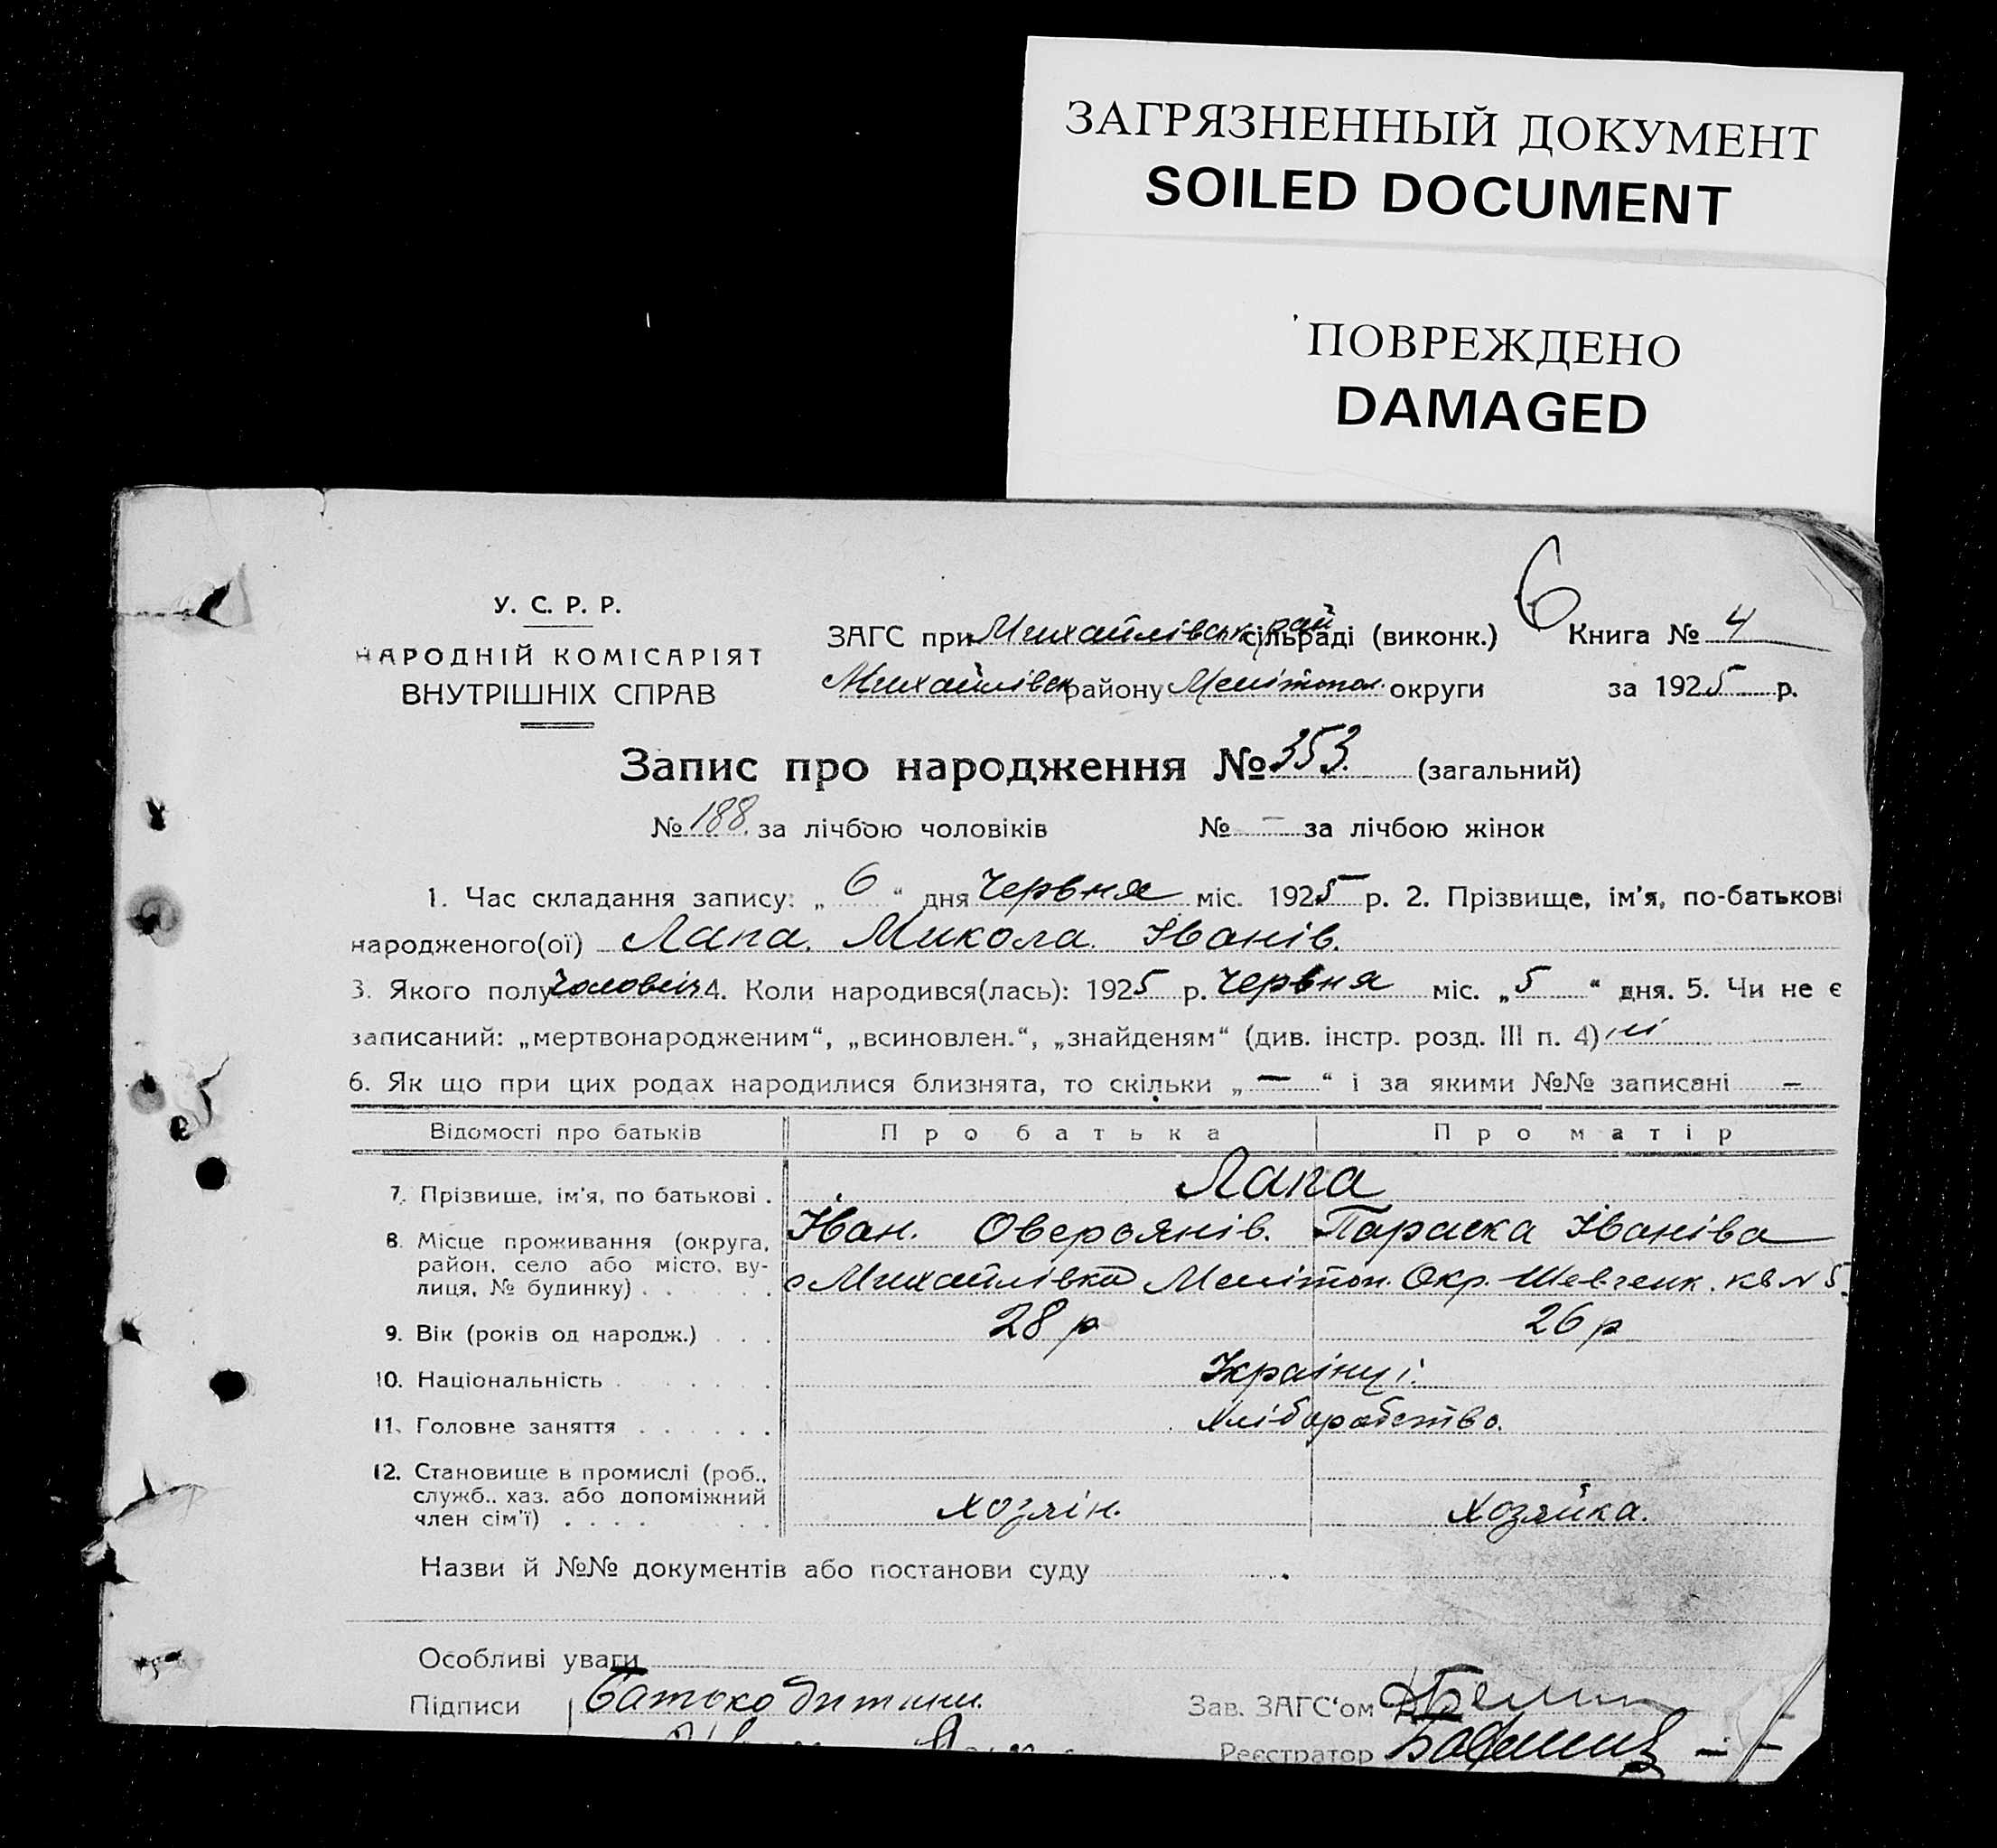 ЗАГРЯЗНЕННЫЙ ДОКУМЕНТ
SOILED DOCUMENT
ПОВРЕЖДЕНО
DAMAGED
6
У. С. Р. Р.
НАРОДНІЙ КОМІСАРІЯТ
ВНУТРІШНІХ СПРАВ
ЗАГС при Михайлівськ рай сільраді (виконк.) Книга № 4
Михайлівськ району Мелітопол. округи за 1925 р.
Запис про народження № 353. (загальний)
№ 188. за лічбою чоловіків № — за лічбою жінок
1. Час складання запису: „ 6 “ дня червня міс. 1925 р. 2. Прізвище, ім'я, по-батькові
народженого(ої) Лапа. Микола Іванів.
3. Якого полу чоловіч 4. Коли народився(лась): 1925 р. червня міс. „ 5 “ дня. 5. Чи не є
записаний: „мертвонародженим“, „всиновлен.“, „знайденям“ (див. інстр. розд. III п. 4) ні
6. Як що при цих родах народилися близнята, то скільки „ — “ і за якими №№ записані —
Відомості про батьків Про батька Про матір
7. Прізвише, ім'я, по батькові . Лапа
Іван. Оверьянів. Параска Іваніва
8. Місце проживання (округа,
район, село або місто, ву-
лиця, № будинку) . . . . . . с Михайлівка Мелітоп. Окр. Шевченк. кв № 5.
9. Вік (років од народж.) . . . 28 р 26 р
10. Національність . . . . . . . Українці.
11. Головне заняття . . . . . . Хліборобство.
12. Становище в промислі (роб.,
служб.. хаз. або допоміжний
член сім'ї) . . . . хозяін. хозяйка.
Назви й №№ документів або постанови суду
Особливі уваги
Підписи Батько дитини. Зав. ЗАГС'ом
Реєстратор